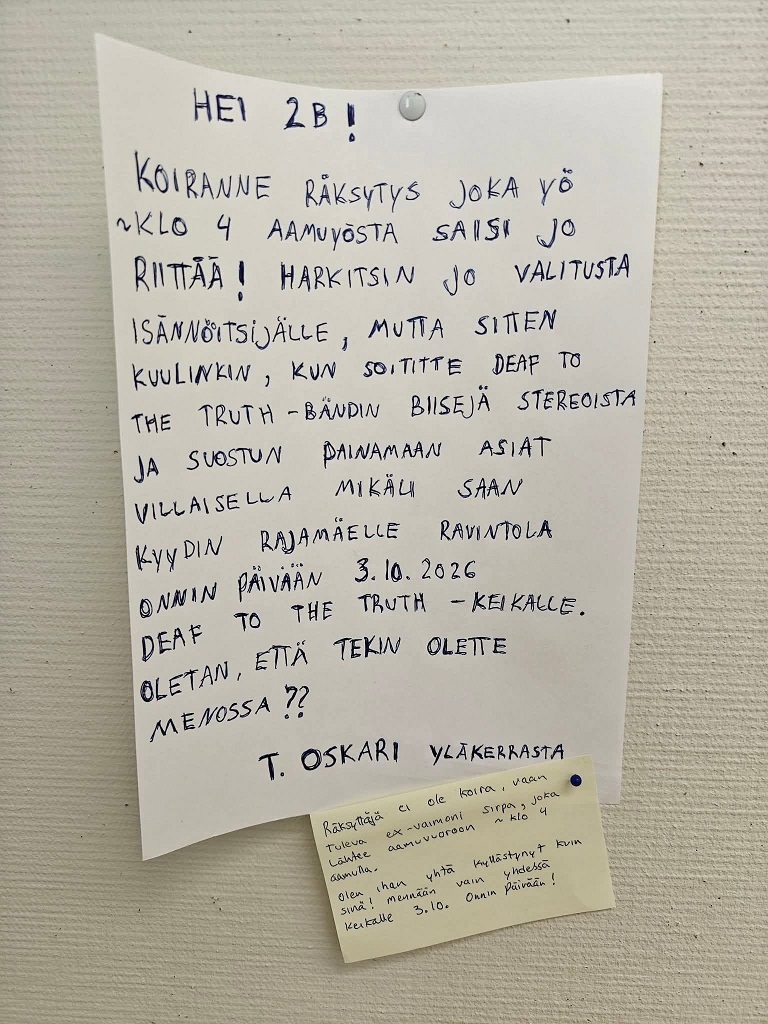 HEI 2B!
KOIRANNE RÄKSYTYS JOKA YÖ
~KLO 4 AAMUYÖSTA SAISI JO
RIITTÄÄ! HARKITSIN JO VALITUSTA
ISÄNNÖITSIJÄLLE, MUTTA SITTEN
KUULINKIN, KUN SOITITTE DEAF TO
THE TRUTH -BÄNDIN BIISEJÄ STEREOISTA
JA SUOSTUN PAINAMAAN ASIAT
VILLAISELLA MIKÄLI SAAN
KYYDIN RAJAMÄELLE RAVINTOLA
ONNIN PÄIVÄÄN 3.10.2026
DEAF TO THE TRUTH -KEIKALLE.
OLETAN, ETTÄ TEKIN OLETTE
MENOSSA??
T. OSKARI YLÄKERRASTA
Räksyttäjä ei ole koira, vaan
tuleva ex-vaimoni Sirpa, joka
lähtee aamuvuoroon ~ klo 4
aamulla.
Olen ihan yhtä kyllästynyt kuin
sinä! Mennään vain yhdessä
keikalle 3.10. Onnin Päivään!